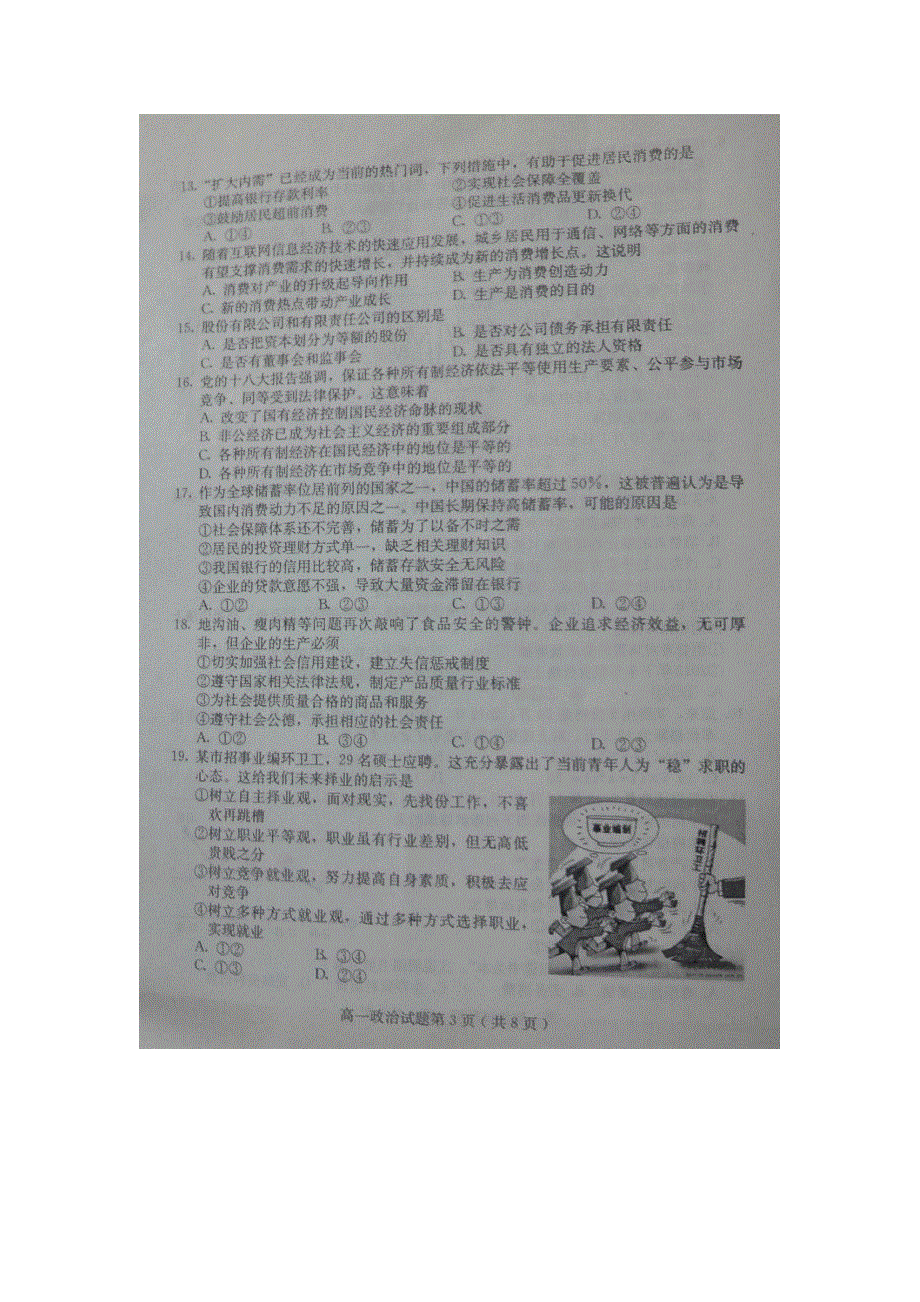 13. “扩大内需”已经成为当前的热门词，下列措施中，有助于促进居民消费的是
①提高银行存款利率 ②实现社会保障全覆盖
③鼓励居民超前消费 ④促进生活消费品更新换代
A. ①④ B. ②③ C. ①③ D. ②④
14. 随着互联网信息经济技术的快速应用发展，城乡居民用于通信、网络等方面的消费
有望支撑消费需求的快速增长，并持续成为新的消费增长点。这说明
A. 消费对产业的升级起导向作用 B. 生产为消费创造动力
C. 新的消费热点带动产业成长 D. 生产是消费的目的
15. 股份有限公司和有限责任公司的区别是
A. 是否把资本划分为等额的股份 B. 是否对公司债务承担有限责任
C. 是否有董事会和监事会 D. 是否具有独立的法人资格
16. 党的十八大报告强调，保证各种所有制经济依法平等使用生产要素、公平参与市场
竞争、同等受到法律保护。这意味着
A. 改变了国有经济控制国民经济命脉的现状
B. 非公经济已成为社会主义经济的重要组成部分
C. 各种所有制经济在国民经济中的地位是平等的
D. 各种所有制经济在市场竞争中的地位是平等的
17. 作为全球储蓄率位居前列的国家之一，中国的储蓄率超过50%，这被普遍认为是导
致国内消费动力不足的原因之一。中国长期保持高储蓄率，可能的原因是
①社会保障体系还不完善，储蓄为了以备不时之需
②居民的投资理财方式单一，缺乏相关理财知识
③我国银行的信用比较高，储蓄存款安全无风险
④企业的贷款意愿不强，导致大量资金滞留在银行
A. ①② B. ②③ C. ①③ D. ②④
18. 地沟油、瘦肉精等问题再次敲响了食品安全的警钟。企业追求经济效益，无可厚
非，但企业的生产必须
①切实加强社会信用建设，建立失信惩戒制度
②遵守国家相关法律法规，制定产品质量行业标准
③为社会提供质量合格的商品和服务
④遵守社会公德，承担相应的社会责任
A. ①② B. ③④ C. ①④ D. ②③
19. 某市招事业编环卫工，29名硕士应聘。这充分暴露出了当前青年人为“稳”求职的
心态。这给我们未来择业的启示是
①树立自主择业观，面对现实，先找份工作，不喜
欢再跳槽
②树立职业平等观，职业虽有行业差别，但无高低
贵贱之分
③树立竞争就业观，努力提高自身素质，积极去应
对竞争
④树立多种方式就业观，通过多种方式选择职业，
实现就业
A. ①② B. ③④
C. ①③ D. ②④
高一政治试题第3页（共8页）